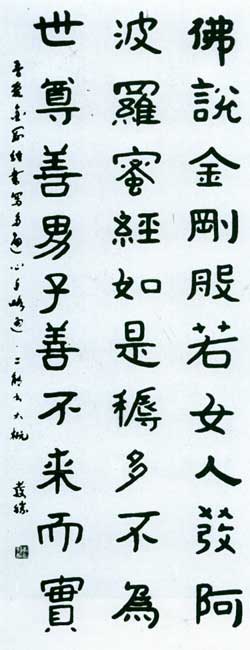 佛說金剛般若女人發阿
波羅蜜經如是耨多不為
世尊善男子善不来而實